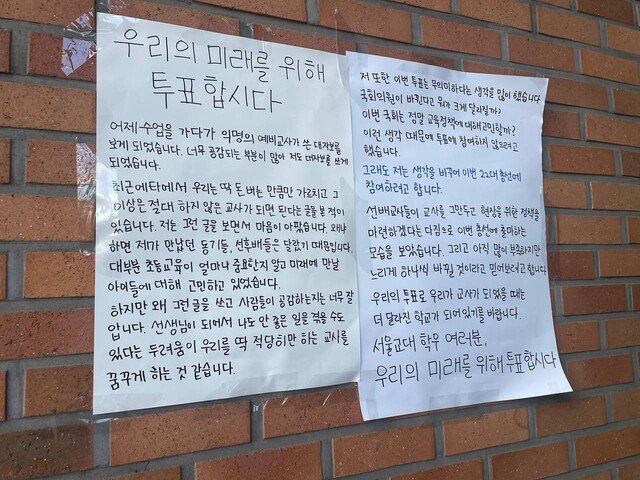 우리의 미래를 위해
투표합시다
어제 수업을 가다가 익명의 예비교사가 쓴 대자보를
보게 되었습니다. 너무 공감되는 부분이 많아 저도 대자보를 쓰게
되었습니다.
최근 에타에서 우리는 딱 돈 버는 만큼만 가르치고 그
이상은 절대 하지 않은 교사가 되면 된다는 글을 본 적이
있습니다. 저는 그런 글을 보면서 마음이 아팠습니다. 왜냐
하면 제가 만났던 동기들, 선후배들은 달랐기 때문입니다.
대부분 초등교육이 얼마나 중요한지 알고 미래에 만날
아이들에 대해 고민하고 있었습니다.
하지만 왜 그런 글을 쓰고 사람들이 공감하는지는 너무 잘
압니다. 선생님이 되어서 나도 안 좋은 일을 겪을 수도
있다는 두려움이 우리를 딱 적당히만 하는 교사를
꿈꾸게 하는 것 같습니다.
저 또한 이번 투표는 무의미하다는 생각을 많이 했습니다.
국회의원이 바뀐다고 뭐가 크게 달라질까?
이번 국회는 정말 교육정책에 대해 고민할까?
이런 생각 때문에 투표에 참여하지 않으려고
했습니다.
그래도 저는 생각을 바꾸어 이번 22대 총선에
참여하려고 합니다.
선배교사들이 교사를 그만두고 현장을 위한 정책을
마련하겠다는 다짐으로 이번 총선에 출마하는
모습을 보았습니다. 그리고 아직 많이 부족하지만
느리게 하나씩 바뀔 것이라고 믿어보려고 합니다.
우리의 투표로 우리가 교사가 되었을 때는
더 달라진 학교가 되어 있기를 바랍니다.
서울교대 학우 여러분,
우리의 미래를 위해 투표합시다